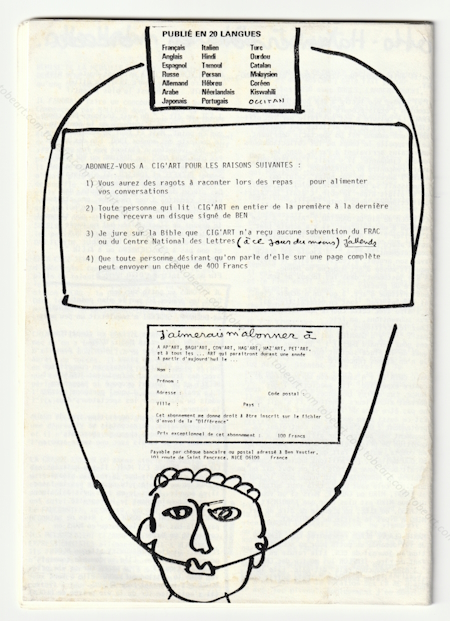 PUBLIÉ EN 20 LANGUES
Français Italien Turc
Anglais Hindi Ourdou
Espagnol Tamoul Catalan
Russe Persan Malaysien
Allemand Hébreu Coréen
Arabe Néerlandais Kiswahili
Japonais Portugais OCCITAN
ABONNEZ-VOUS A CIG'ART POUR LES RAISONS SUIVANTES :
1) Vous aurez des ragots à raconter lors des repas pour alimenter
vos conversations
2) Toute personne qui lit CIG'ART en entier de la première à la dernière
ligne recevra un disque signé de BEN
3) Je jure sur la Bible que CIG'ART n'a reçu aucune subvention du FRAC
ou du Centre National des Lettres (à ce jour du moins) j'attends
4) Que toute personne désirant qu'on parle d'elle sur une page complète
peut envoyer un chèque de 400 Francs
J'aimerais m'abonner à
A AP'ART, BAQU'ART, CON'ART, HAG'ART, HAZ'ART, PET'ART,
et à tous les ... ART qui paraîtront durant une année
à partir d'aujourd'hui le ...
Nom :
Prénom :
Adresse : Code postal :
Ville : Pays :
Cet abonnement me donne droit à être inscrit sur le fichier
d'envoi de la "Différence"
Prix exceptionnel de cet abonnement : 100 Francs
Payable par chèque bancaire ou postal adressé à Ben Vautier,
103 route de Saint Pancrace, NICE 06100 France